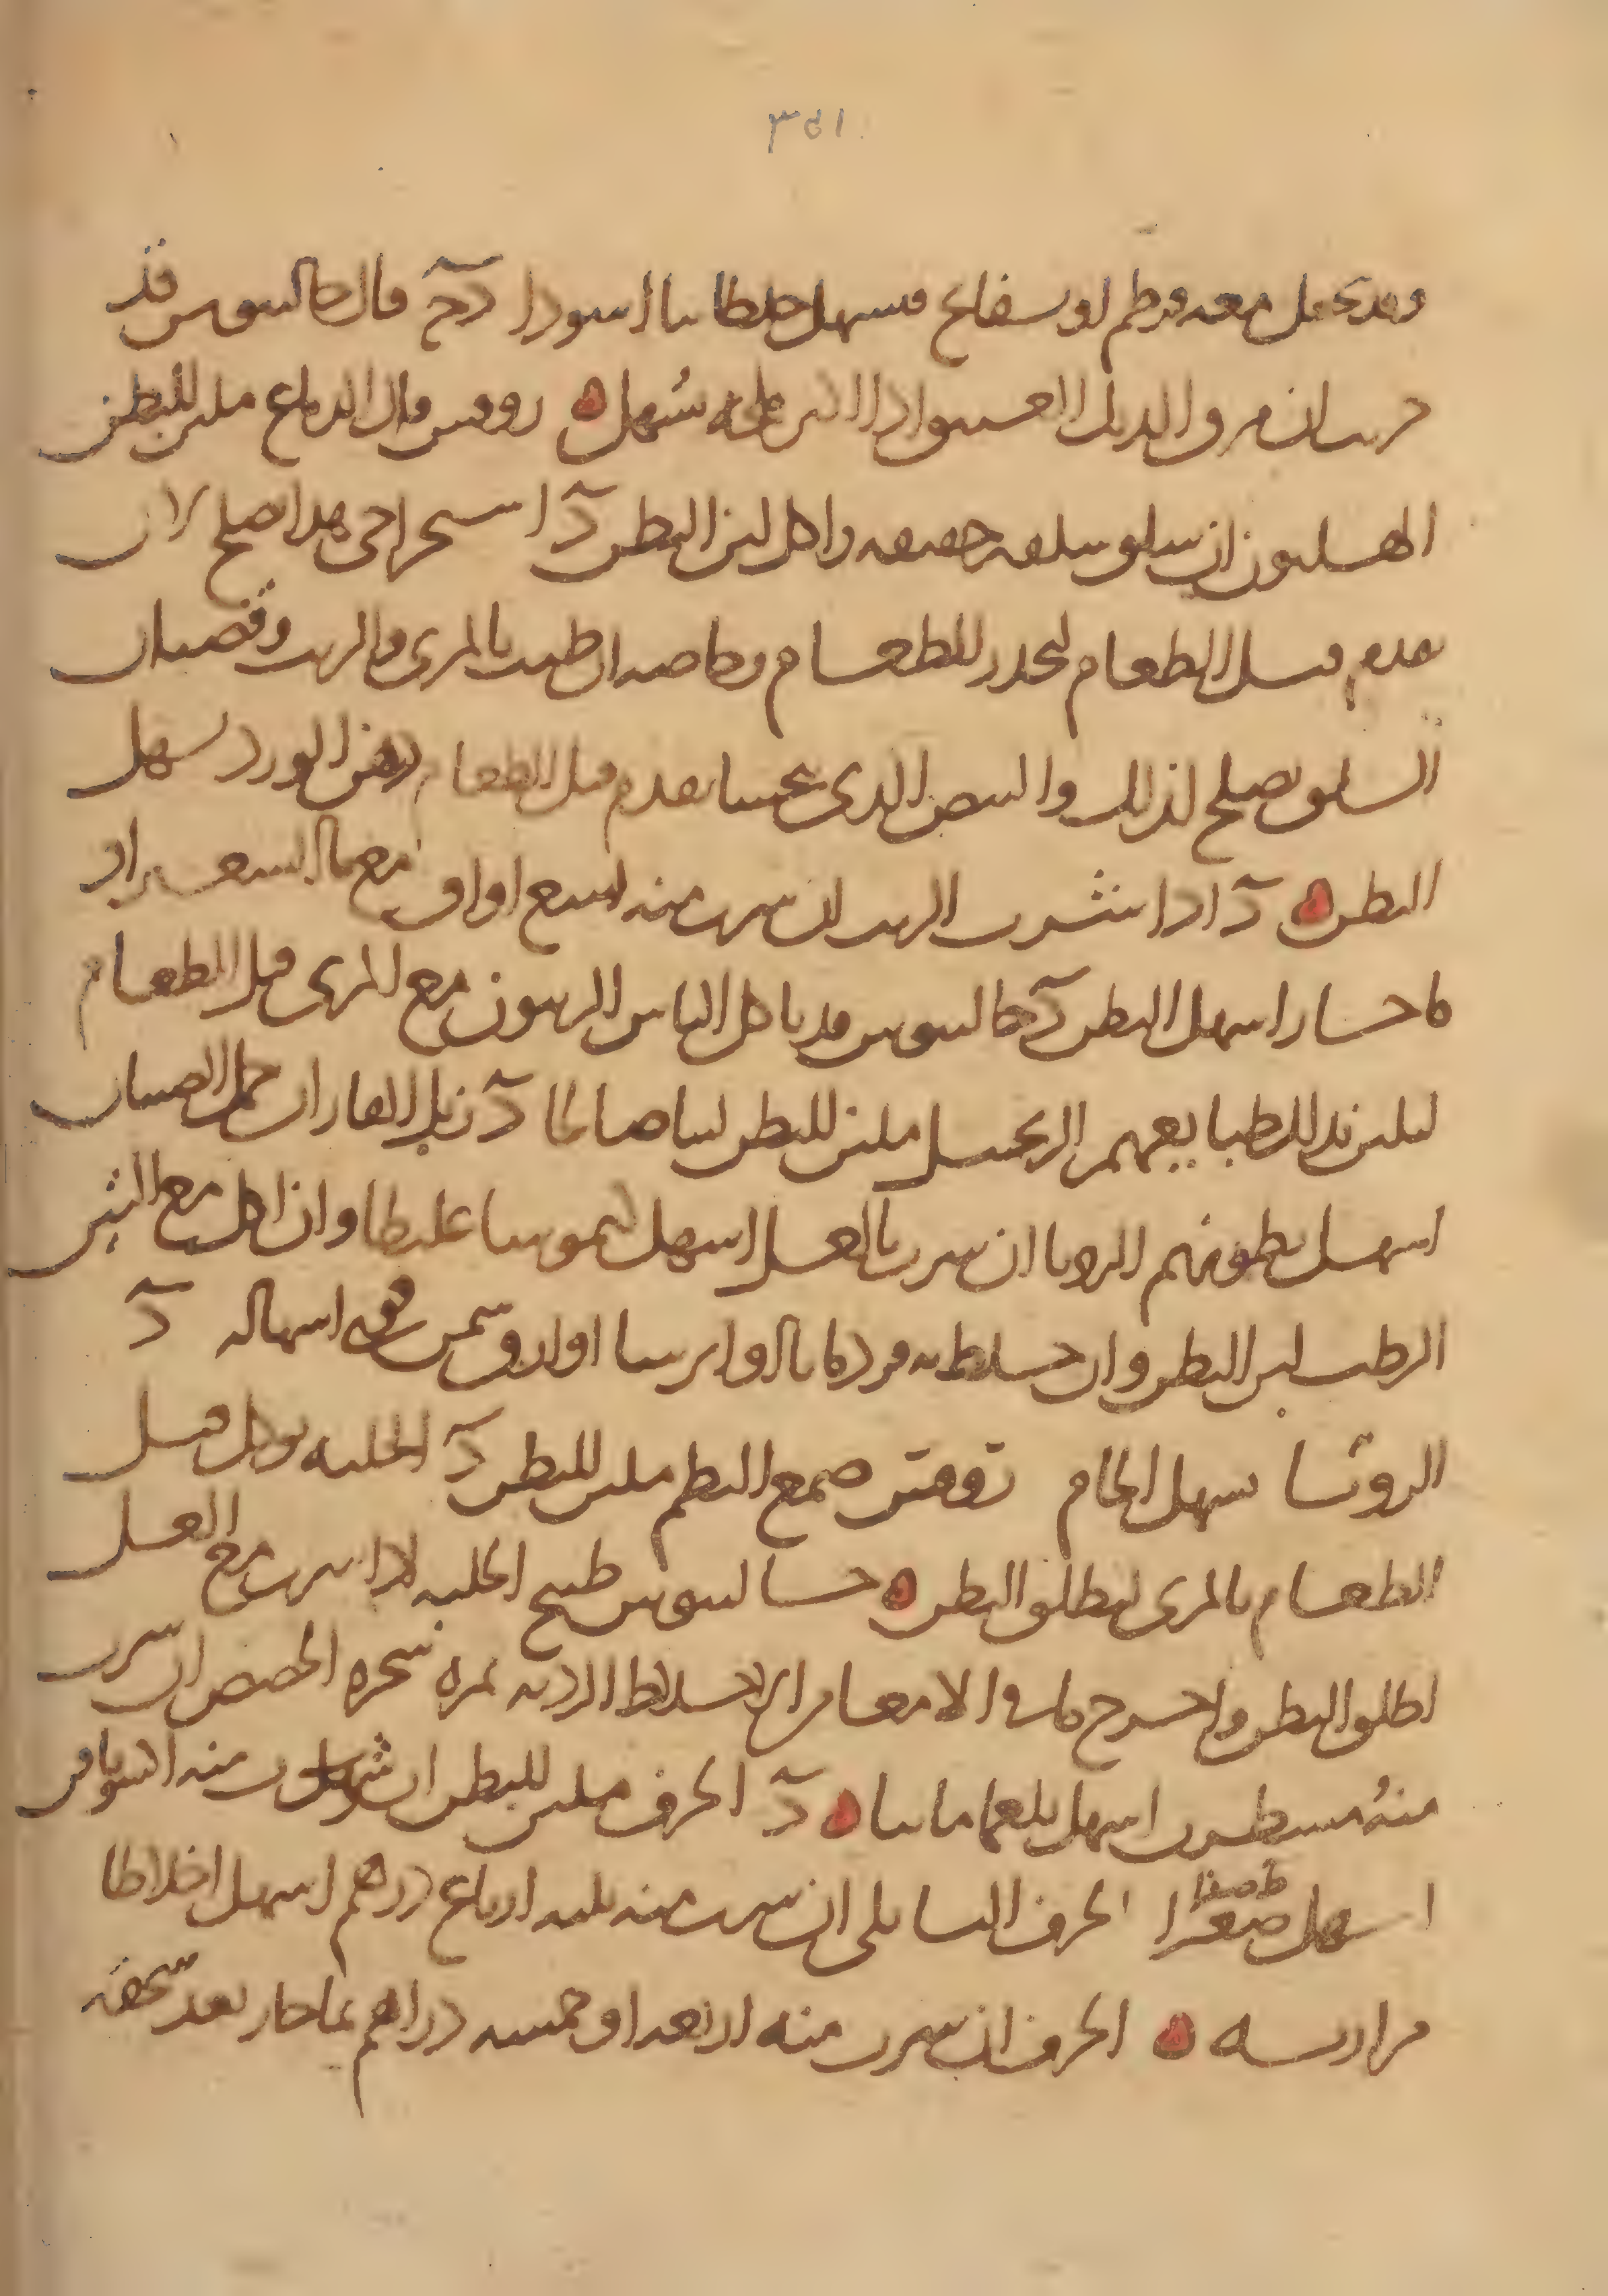 ٣٥١
وقد يجعل معه قرطم او بسفايج فيسهل خلطا نيا اسودا د ج قال جالينوس قد
جربت ان مرق الديك العتيق اذا اكثر ملحه يسهل ه روفس قال الدماغ ملين للبطن
الهليون ان سلق سلقه خفيفه واكل لين البطن د استخراجي هذا اصلح لان
يقدم قبل الطعام لينحدر للطعام وخاصه ان طيب بالمري والزيت وقضبان
السلق يصلح لذلك والبيض الذي يتحسا يقدم قبل الطعام دهن الورد يسهل
البطن ه د اذا شرب الزيت ان شرب منه تسع اواق مع ما الشعير او
ما حار اسهل البطن د جالينوس قد ياكل الناس الزيتون مع المري قبل الطعام
لتلين به الطبايعهم الزنجبيل ملين للبطن لينا صالحا د زبل الفار ان حمل الصبيان
اسهل بطونهم الروبيا ان شرب بالعسل اسهل كيموسا غليظا وان اكل مع التين
الرطب لين البطن وان خلط به قردمانا او ايرسا او اذريسمن قوى اسهاله د
الروشا يسهل الخام روفس صمغ البطم ملين للبطن د الحلبه توكل قبل
الطعام بالمري لتطلق البطن ه جالينوس طبيخ الحلبه اذا شرب مع العسل
اطلق البطن واخرج ما في الامعا من الاخلاط الرديه ثمره شجره الحضض ان شرب
منه اسهل بلغما مائيا ه د الحرف ملين للبطن ان شرب منه اكسوبافن
اسهل صفرا الحرف البابلي ان شرب منه ثلثه ارباع درهم اسهل اخلاطا
مراريه ه الحرف ان شرب منه اربعه او خمسه دراهم بماحار بعد سحقه